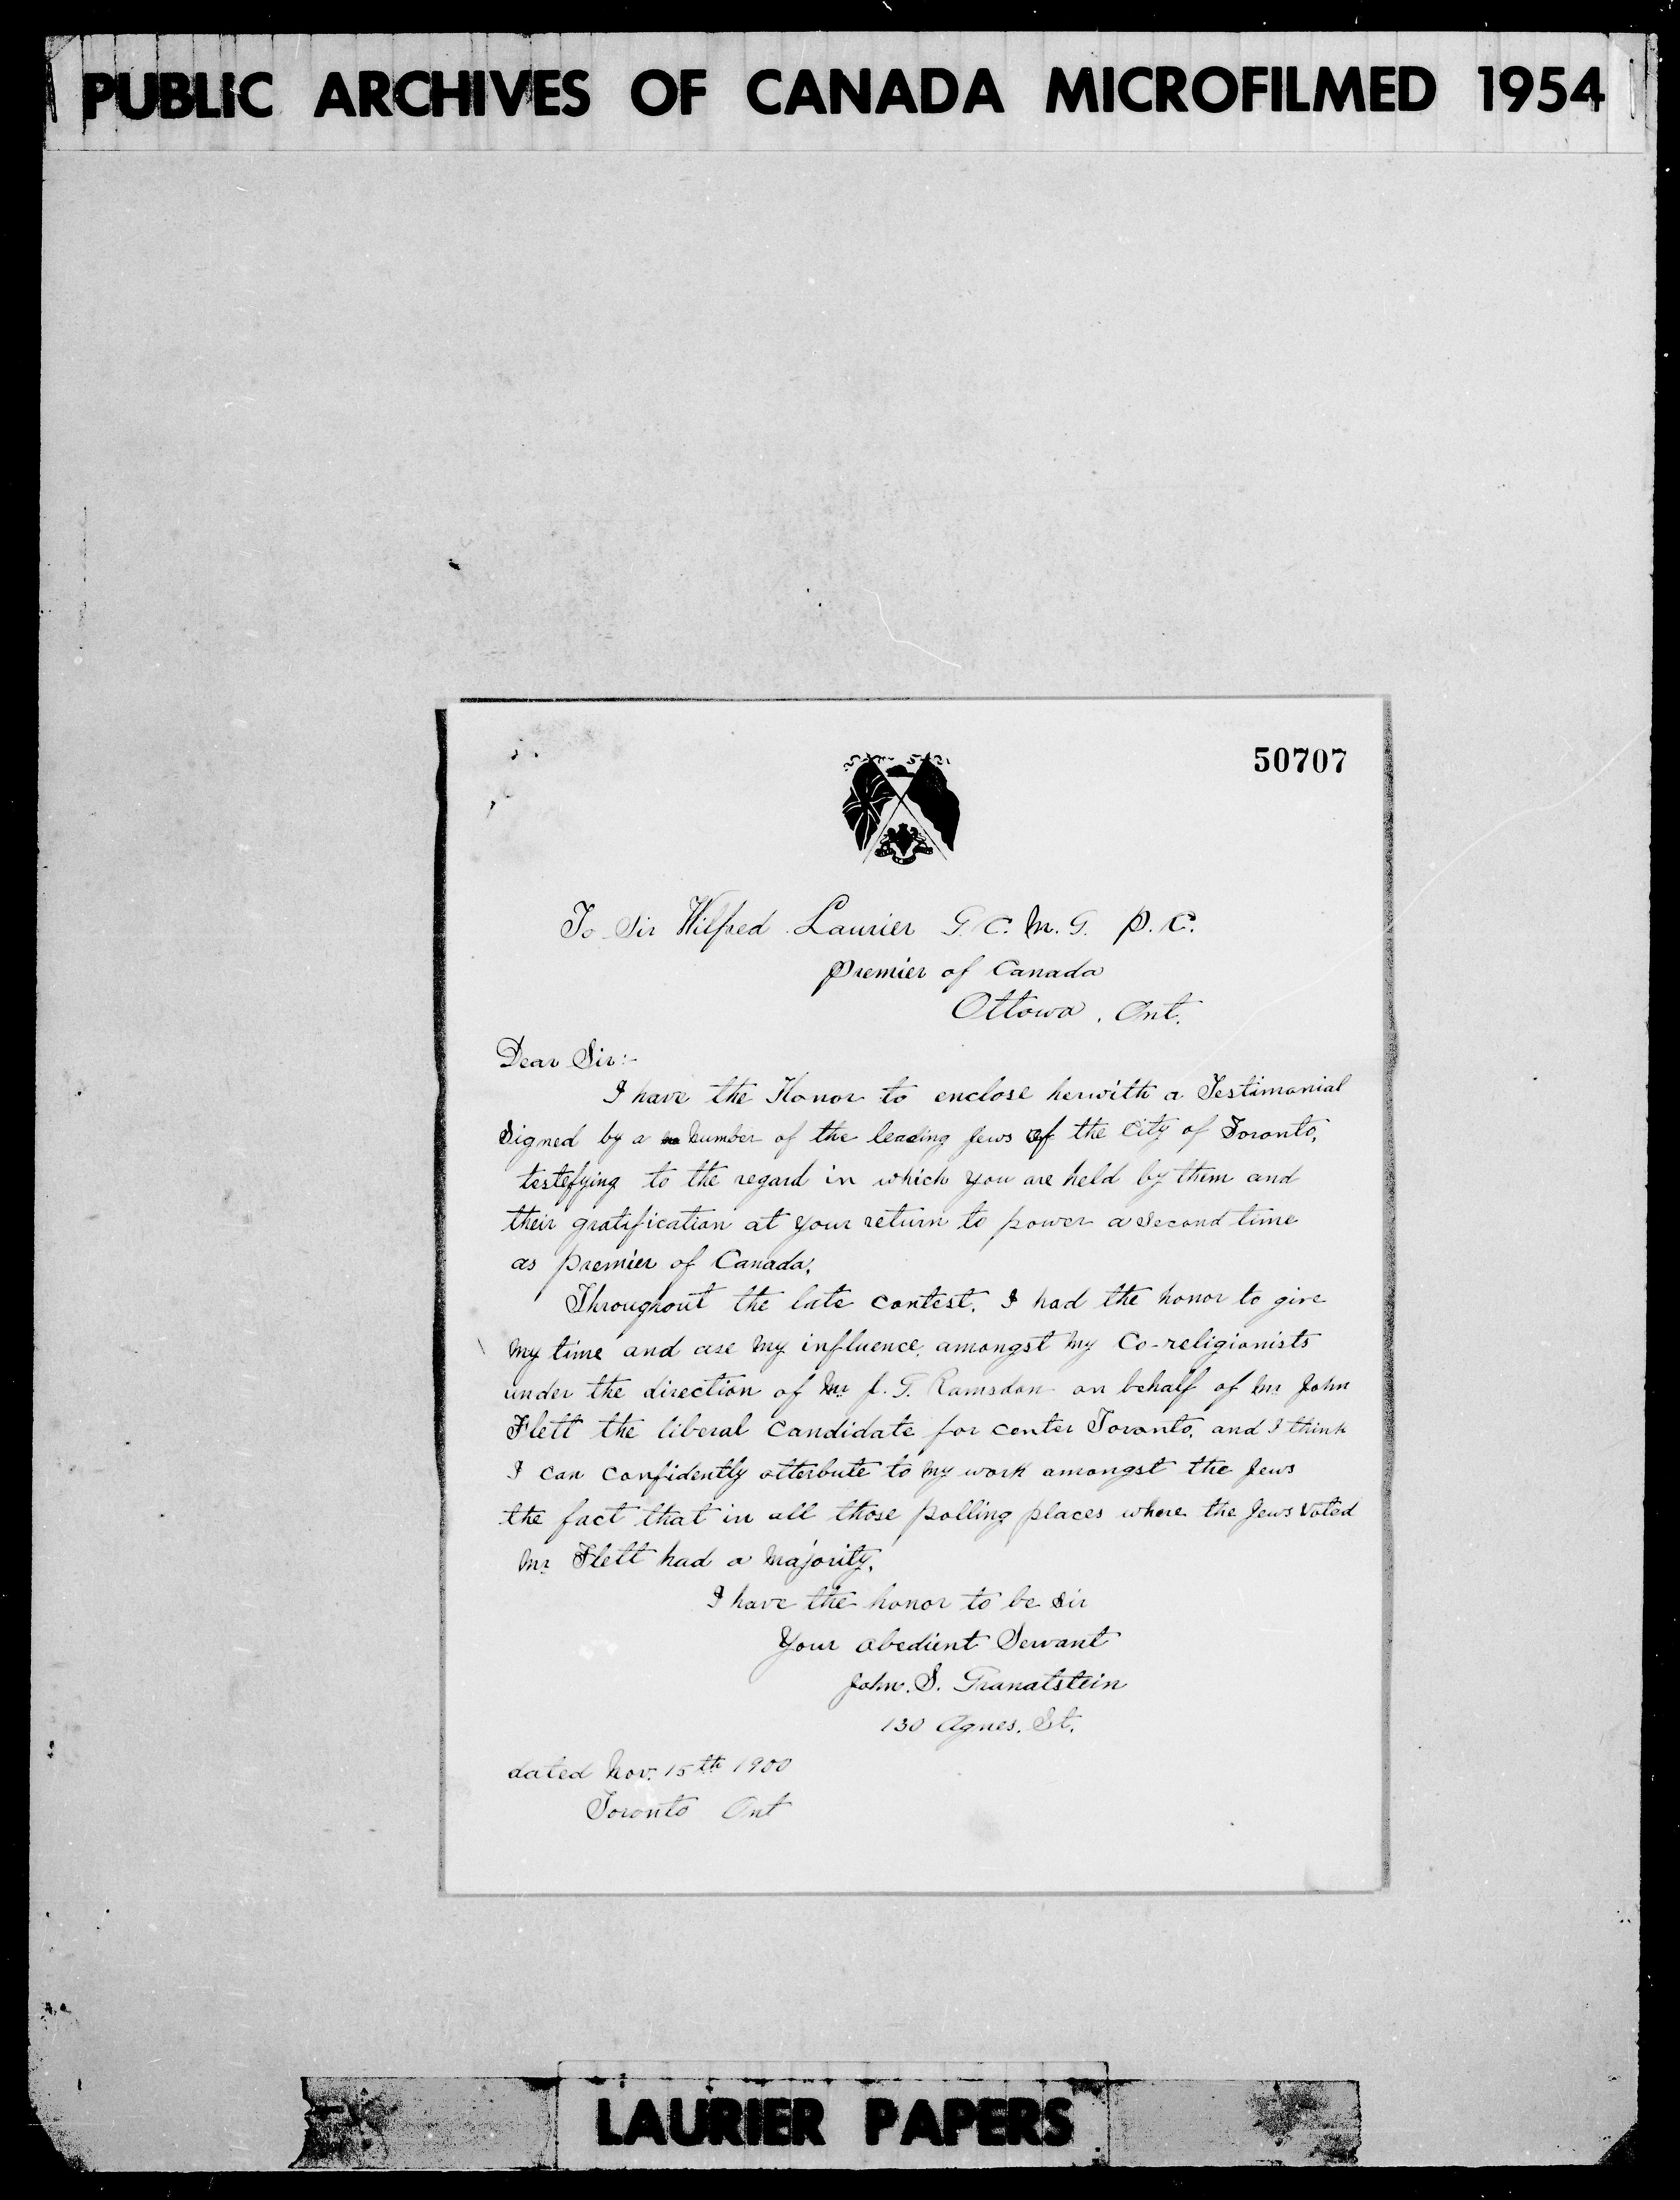 PUBLIC ARCHIVES OF CANADA MICROFILMED 1954
50707
To Sir Wilfred Laurier G.C.M.G. P.C.
Premier of Canada
Ottowa, Ont.
Dear Sir:-
I have the Honor to enclose herwith a Testimonial
Signed by a number of the leading Jews of the City of Toronto,
testefying to the regard in which you are held by them and
their gratification at your return to power a second time
as premier of Canada.
Throughout the late contest, I had the honor to give
my time and use my influence, amongst my Co-religionists
under the direction of Mr J. G. Ramsdon on behalf of Mr John
Flett the liberal Candidate for center Toronto, and I think
I can confidently atterbute to my work amongst the Jews
the fact that in all those polling places where the Jews voted
Mr Flett had a majority.
I have the honor to be Sir
Your obedient Servant
John. S. Granatstein
130 Agnes. St.
dated Nov. 15th 1900
Toronto Ont
LAURIER PAPERS